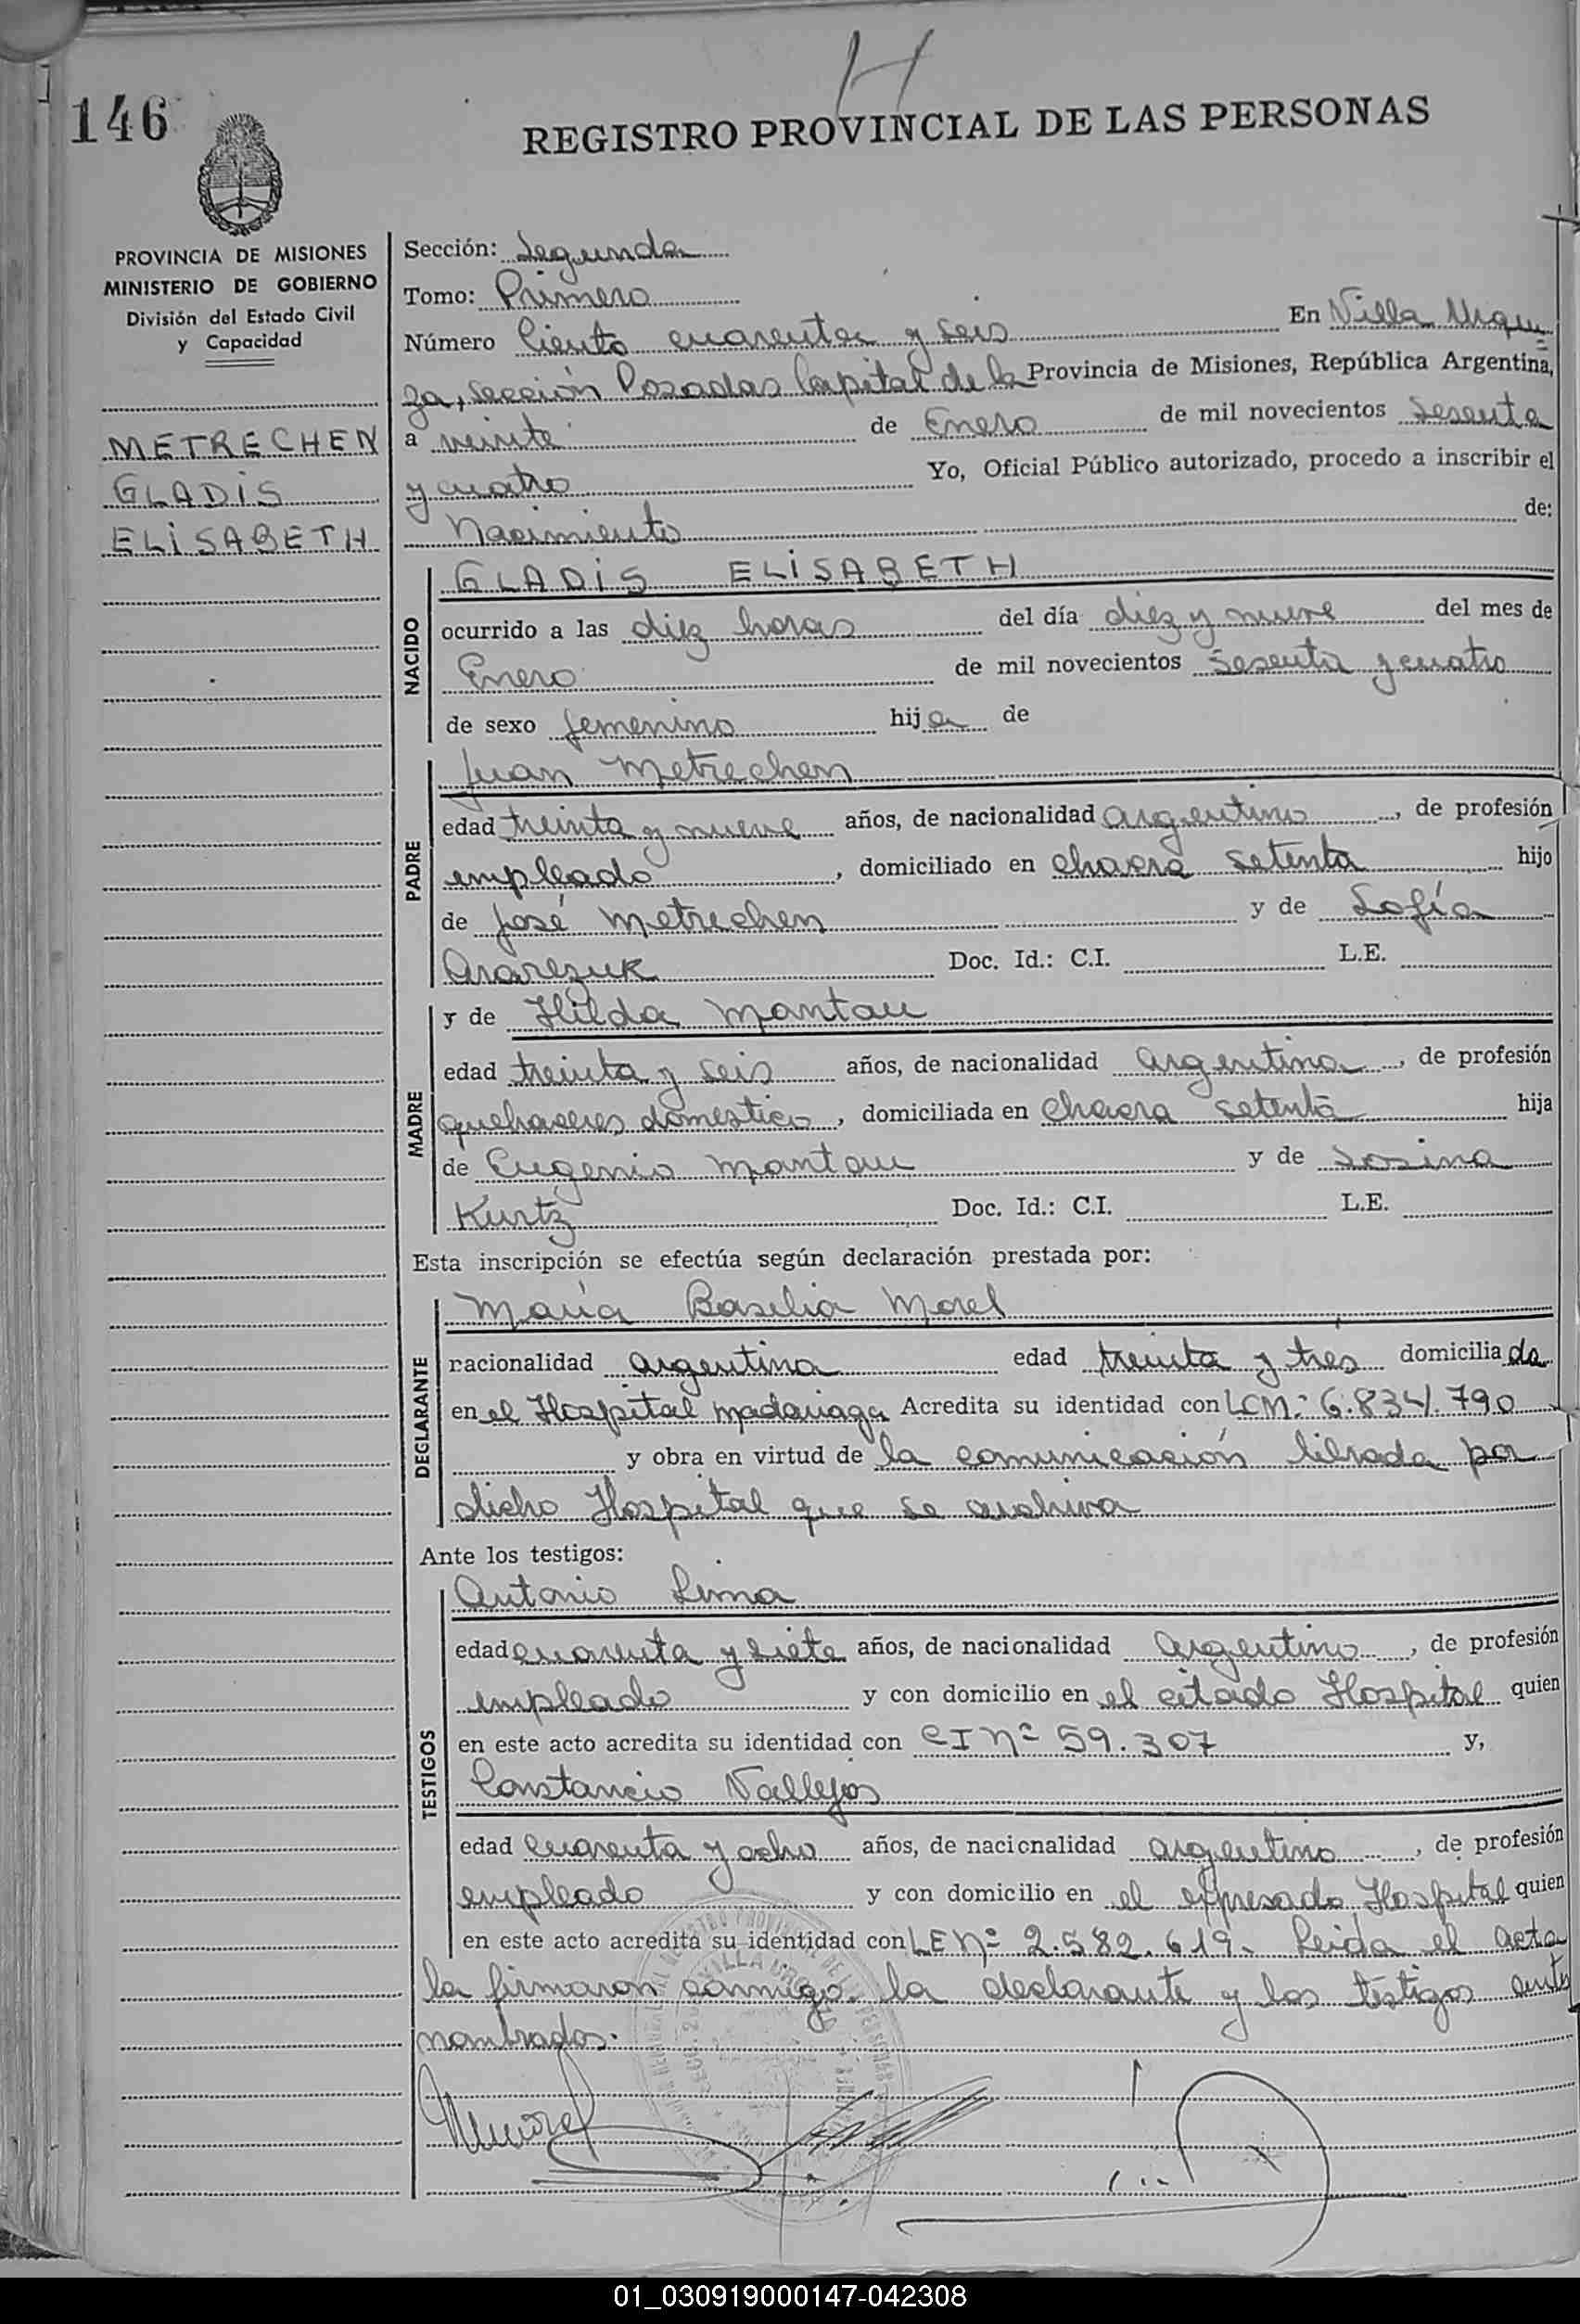 H
146
REGISTRO PROVINCIAL DE LAS PERSONAS
PROVINCIA DE MISIONES
MINISTERIO DE GOBIERNO
División del Estado Civil
y Capacidad
METRECHEN
GLADIS
ELISABETH
Sección: Segunda
Tomo: Primero
Número Ciento cuarenta y seis En Villa Urqui
za, sección Posadas Capital de la Provincia de Misiones, República Argentina,
a veinte de Enero de mil novecientos sesenta
y cuatro Yo, Oficial Público autorizado, procedo a inscribir el
Nacimiento de:
NACIDO
GLADIS ELISABETH
ocurrido a las diez horas del día diez y nueve del mes de
Enero de mil novecientos sesenta y cuatro
de sexo femenino hija de
PADRE
Juan Metrechen
edad treinta y nueve años, de nacionalidad argentino, de profesión
empleado, domiciliado en chacra setenta hijo
de José Metrechen y de Sofía
Doc. Id.: C.I. L.E.
MADRE
y de Hilda Mantau
edad treinta y seis años, de nacionalidad argentina, de profesión
quehaceres domestico, domiciliada en chacra setenta hija
de Eugenio Mantau y de Sosina
Kurtz Doc. Id.: C.I. L.E.
Esta inscripción se efectúa según declaración prestada por:
DECLARANTE
María Basilia Morel
nacionalidad argentina edad treinta y tres domiciliada
en el Hospital Madariaga Acredita su identidad con LCNº 6.834.790
y obra en virtud de la comunicación librada por
dicho Hospital que se archiva
Ante los testigos:
TESTIGOS
Antonio Lima
edad cuarenta y siete años, de nacionalidad argentino, de profesión
empleado y con domicilio en el citado Hospital quien
en este acto acredita su identidad con CI Nº 59.307 y,
Constancio Vallejos
edad cuarenta y ocho años, de nacionalidad argentino, de profesión
empleado y con domicilio en el expresado Hospital quien
en este acto acredita su identidad con LE Nº 2.582.619. Leida el acta
la firmaron conmigo la declarante y los testigos ante
nombrados.
01_030919000147-042308